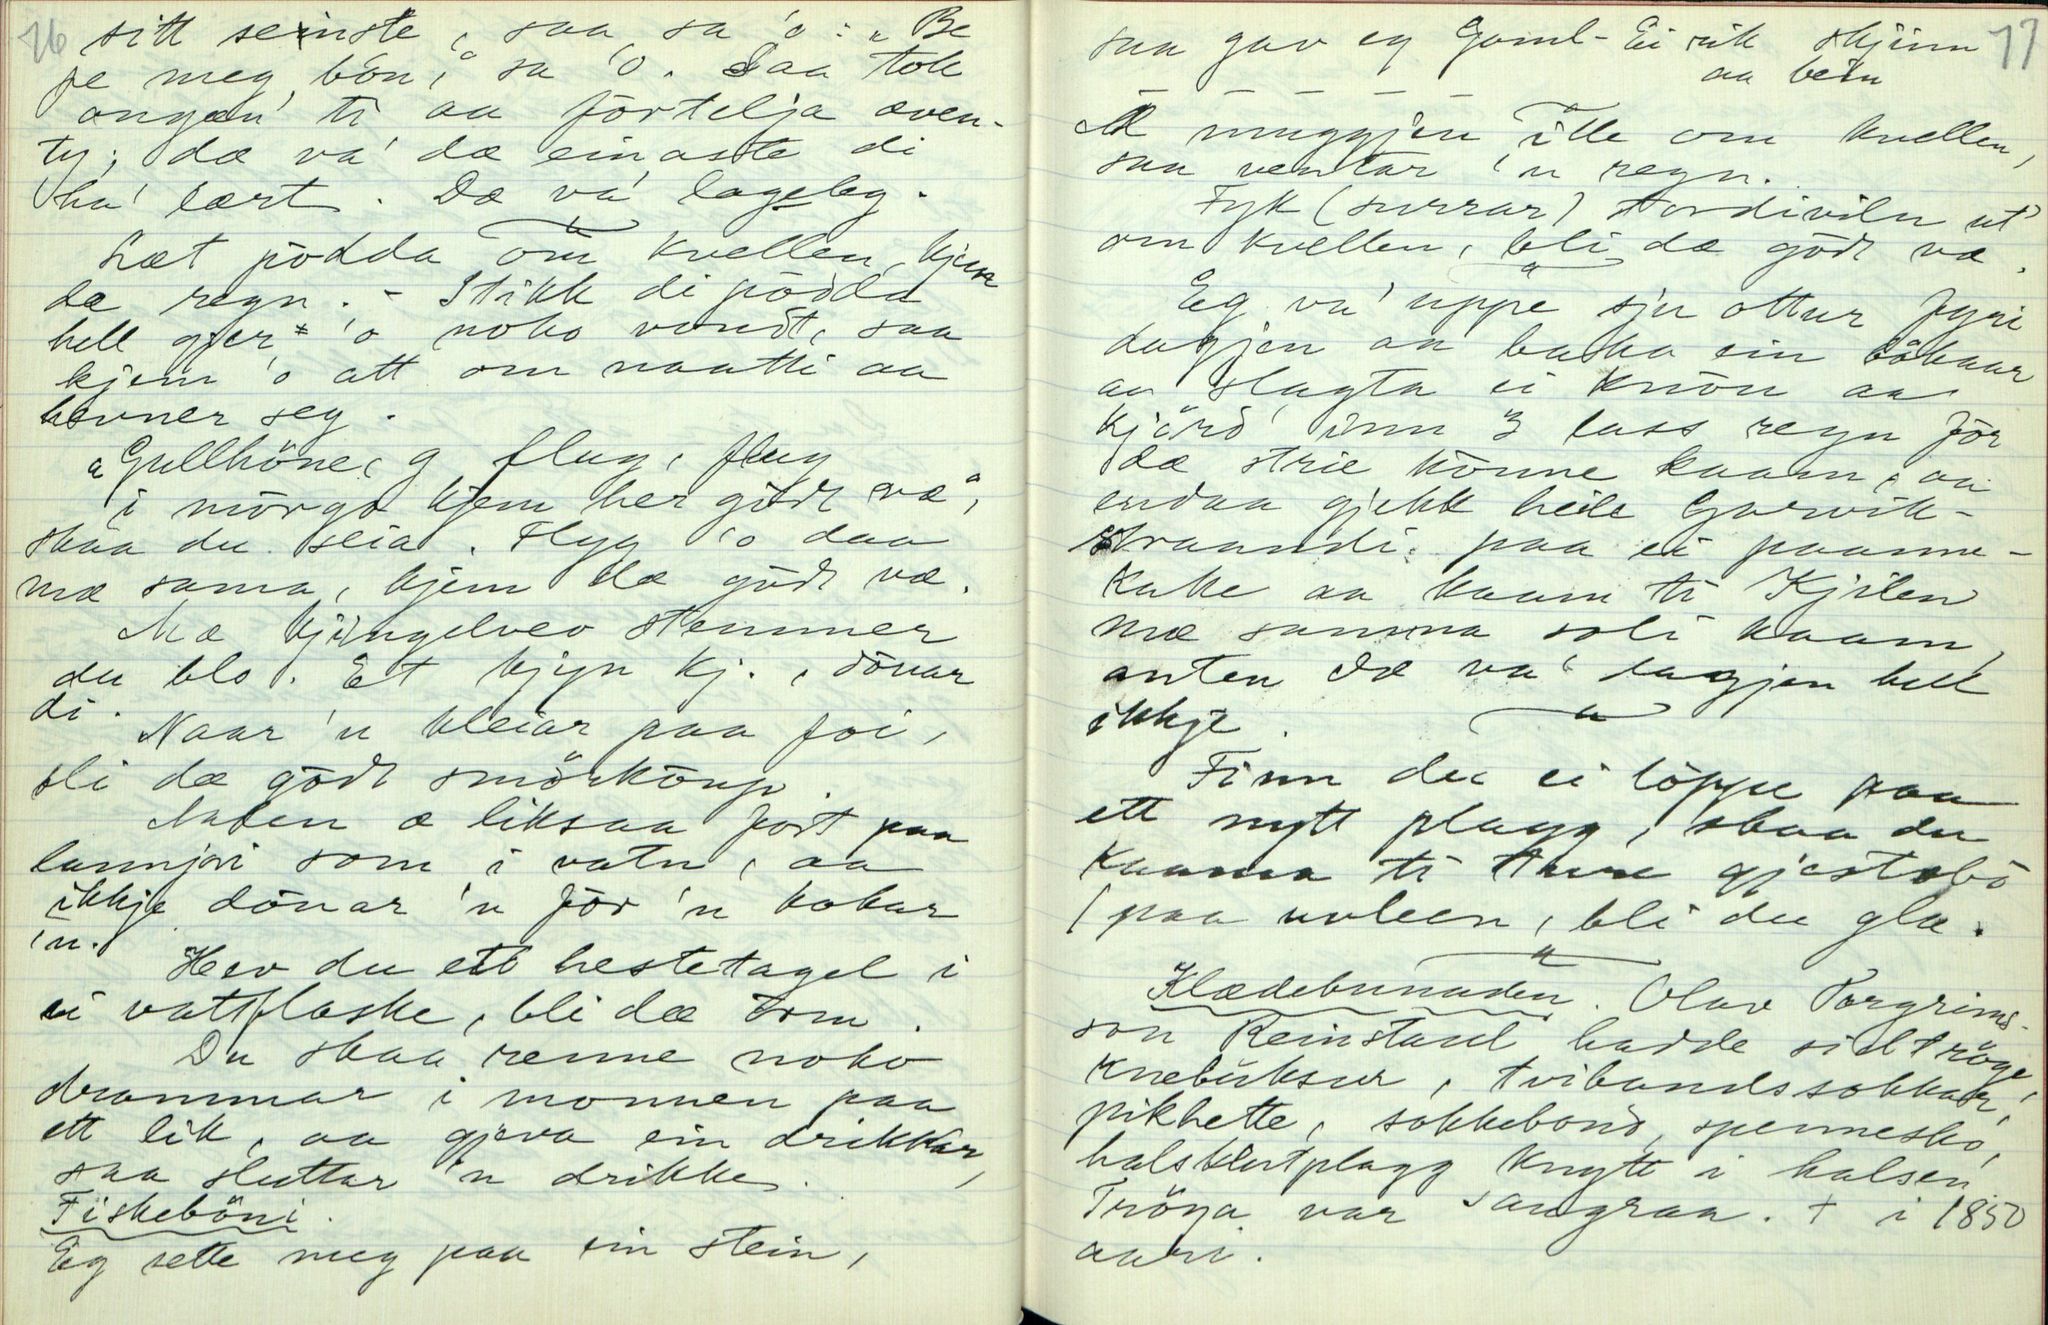 16
sitt seinste, saa sa 'o: „Be
pe meg, bön," sa 'o. Saa tok
ongan' ti aa förtelja even-
ty; dæ va' dæ einaste di
ha' lært. Dæ va' lageleg.
Læt pödda om kvellen, kjem
dæ regn. - Stikk di pödda
hell gjer 'o noko vondt, saa
kjem 'o att om naatti aa
hevner seg.
„Gullhöne, g flug, flug
i mörgo kjem her gödt væ",
skaa du seia. Flyg 'o daa
mæ sama, kjem dæ gödt væ.
Mæ kjingelvev stemmer
du blo. Et kjyn kj., dönar
di.
Naar 'n kleiar paa foi,
bli dæ gödt smörkönp.
Naden æ liksaa fort paa
lannjöri som i vatn, aa
ikkje dönar 'n för 'n kokar
'n.
Hev du ett hestetagel i
ei vattflaske, bli dæ orm.
Du skaa renne noko
drammar i monnen paa
ett lik, aa gjeva ein drikkar,
saa sluttar 'n drikke.
Fiskeböni.
Eg sette meg paa ein stein,
17
saa gav eg Goml-Eirik skjinn
aa bein
Æ muggjen ille om kvellen,
saa ventar 'n regn.
Fyk (surrar) tordiviln ut
om kvellen, bli dæ gödt væ.
Eg va' uppe sju ottur fyri
dagjen aa baka ein bökaar
aa slagta ei knön aa
kjörd' inn 3 lass regn för
dæ strie könne kaam, aa
endaa gjekk heile Garvik-
straandi paa ei paanne-
kake aa kaam ti Kjilen
mæ samma soli kaam,
anten dæ va' dagjen hell
ikkje.
Finn du ei löppe paa
ett nytt plagg, skaa du
kaama ti ture gjestabö
i paa uvleen, bli du glæ.
Klædebunaden. Olav Torgrims-
son Reinstaul hadde sidtröge,
knebuksur, tvibandssokkar,
pikhette, sokkebond, spennesko,
halsklutplagg knytt i halsen.
Tröya var sangraa. + i 1850
aari.